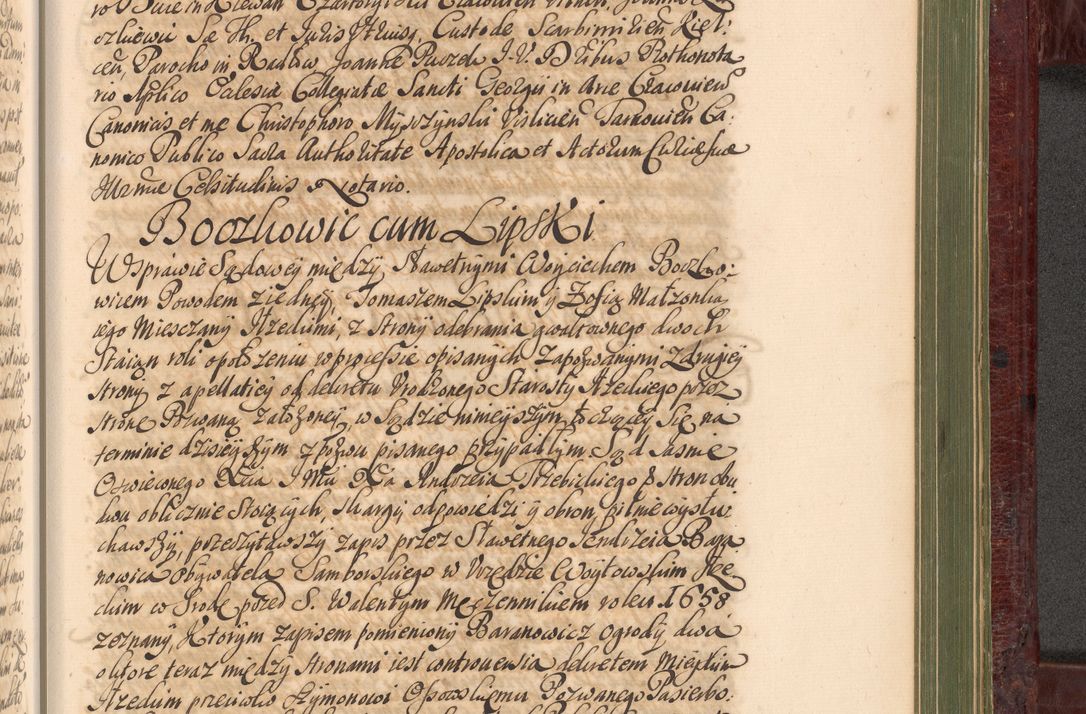 ozluewic Sæ Th. et Juris Utriusq Custode Scarbimirien Kiel:
cen, Parocho in Radlow, Joanne Puczda J. V. D. Tribus Prothonota
rio Aplico Eclesiæ Collegiatæ Sancti Georgii in Arce Cracovien
Canonicis et me Christophoro Myszynski Vislicien Tarnovien Ca.
nonico Publico Sacra Authoritate Apostolica et Actorum Curiæ suæ
Illrmæ Celsitudinis Notario.
Boczkowic cum Lipski
W Sprawie Sądowey między Sławetnymi Woyciechem Boczko:
wicem Powodem z iedney, Tomaszem Lipskim y Zofią Małzonką
iego Miesczany Ilzeckimi, z Strony odebrania gwałtownego dwoch
Staian roli o położeniu w processie opisanych Zapozwanymi z drugiey
Strony z apellatiey od dekretu Urodzonego Starosty Ilzeckiego przez
Stronę Pozwaną założoney, w Sądzie ninieyszym toczącey Się na
terminie dzisieyszym z pozwu pisanego przypadłym Sąd Jasnie
Oswieconego Xcia J Mci Xa Andrzeia Trzebickiego B stron obu
dwu oblicznie Stoiących, Skargi, odpowiedzi, y obron pilnie wysłu
chawszy, przeczytawszy zapis przez Sławetnego Jendrzeia Bara
nowica Obywatela Samborskiego w Vrzędzie Woytowskim Ilze
ckim w Srodę przed S. Walentym Męczennikiem roku 1658
zeznany, Ktorym zapisem pomieniony Baranowicz Ogrody dwa
o ktore teraz między Stronami iest controuersia dekretem Mieyskim
Ilzeckim przeciwko Szymonowi Osowskiemu Pozwanego Pasierbo: